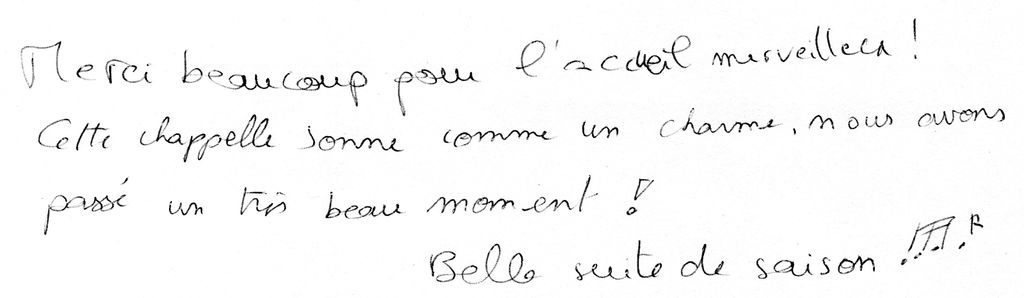 Merci beaucoup pour l'accueil merveilleux !
Cette chappelle sonne comme un charme, nous avons
passé un très beau moment !
Belle suite de saison !!!